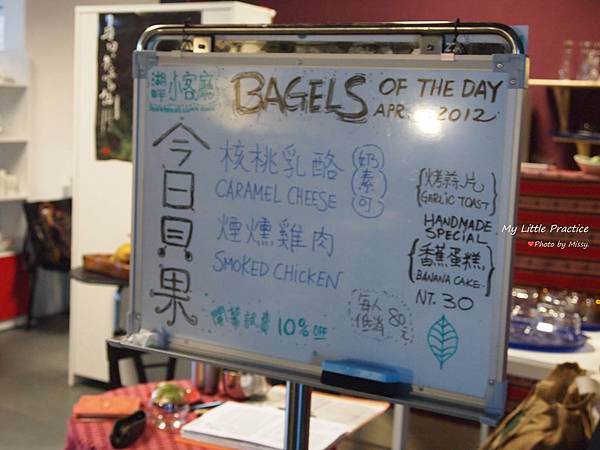 湖畔小客廳
BAGELS OF THE DAY
APR. 2012
今日貝果
核桃乳酪
奶素可
CARAMEL CHEESE
煙燻雞肉
SMOKED CHICKEN
開幕試賣 10% OFF
每人低消 80元
烤蒜片
GARLIC TOAST
HANDMADE
SPECIAL
香蕉蛋糕
BANANA CAKE
NT. 30
My Little Practice
Photo by Missy.